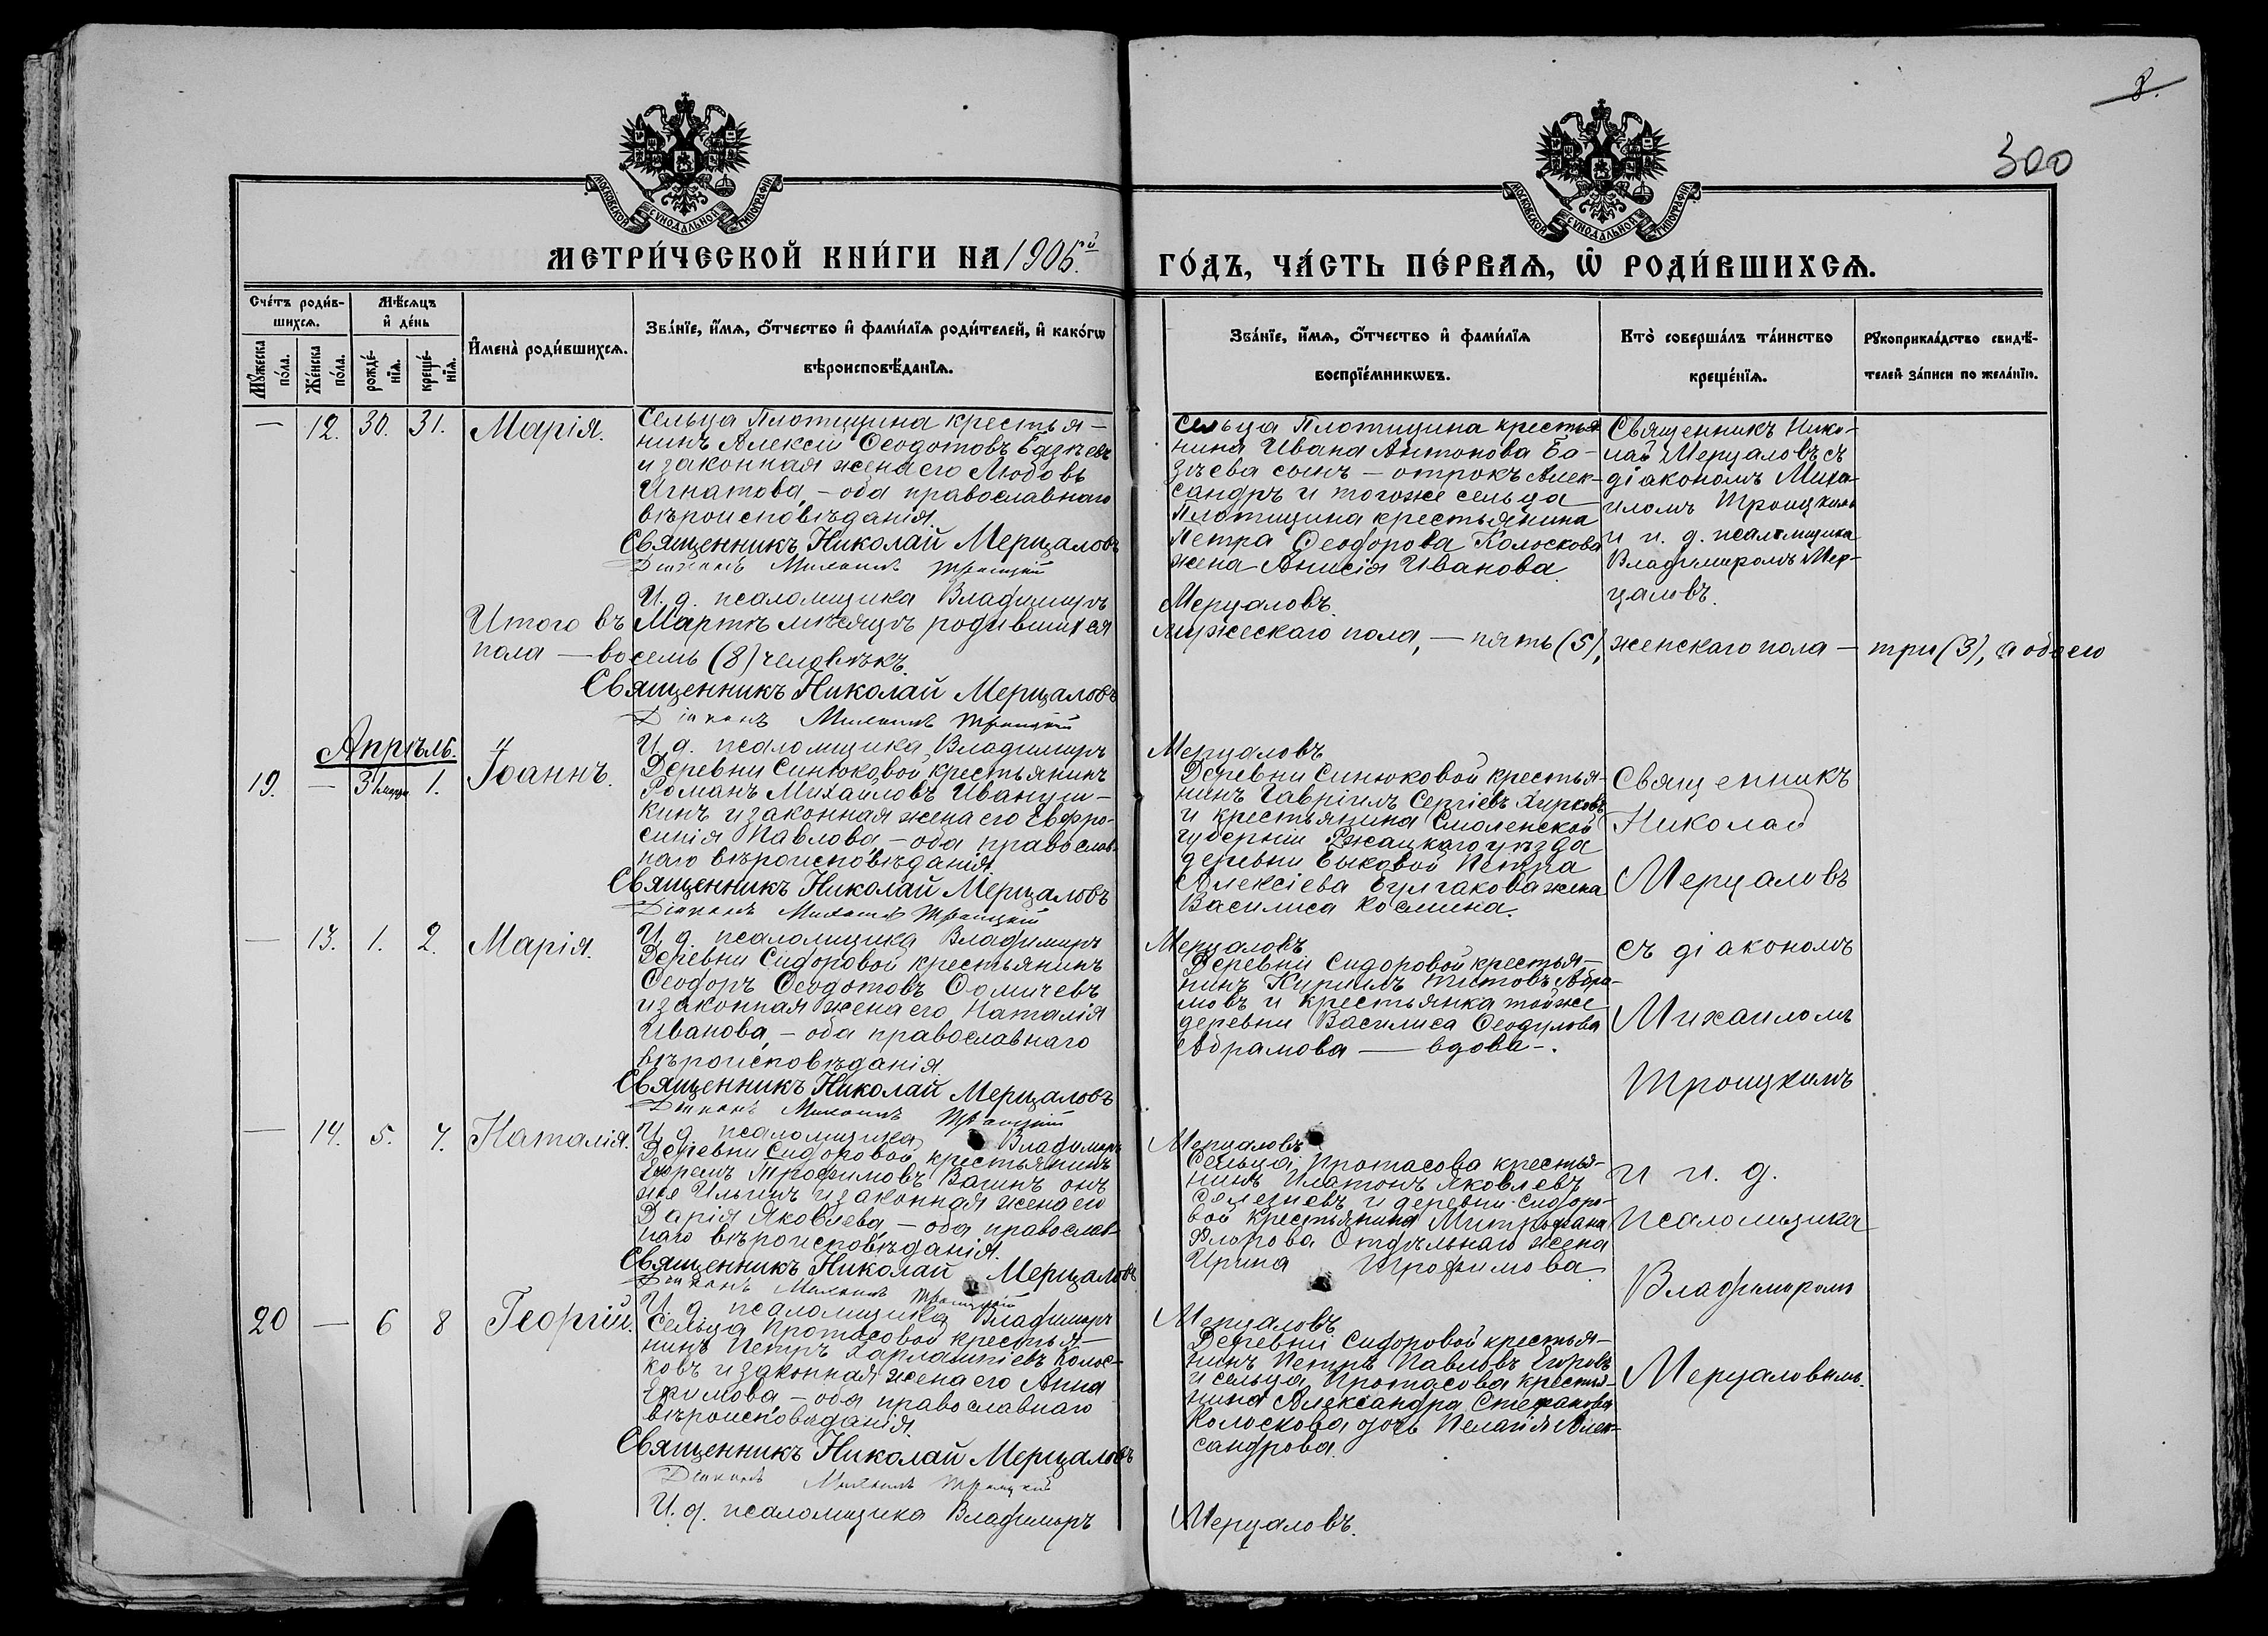 8.
300
МОСКОВСКОЙ СѴНОДАЛЬНОЙ ТИПОГРАФІИ
МОСКОВСКОЙ СѴНОДАЛЬНОЙ ТИПОГРАФІИ
МЕТРИ́ЧЕСКОЙ КНИ́ГИ НА 1905.й
ГО́ДЪ, ЧА́СТЬ ПЕ́РВАѦ, Ѿ РОДИ́ВШИХСѦ.
Сче́тъ роди́в-
шихсѧ.
Мѣ́сѧцъ
и҆ де́нь
Мꙋ́жеска по́ла.
Же́нска по́ла.
рожде́-нїѧ.
креще́-нїѧ.
И҆мена̀ роди́вшихсѧ.
Зва́нїе, и҆́мѧ, ѻ҆́тчество и҆ фами́лїѧ роди́телей, и҆ како́гѡ
вѣроисповѣ́данїѧ.
Зва́нїе, и҆́мѧ, ѻ҆́тчество и҆ фами́лїѧ
воспрїе́мникѡвъ.
Кто̀ соверша́лъ та́инство
креще́нїѧ.
Рꙋкоприкла́дство свидѣ́-
телей за́писи по жела́нїю.
— 12. 30. 31. Марія.
Сельца Плотицина крестья-
нинъ Алексій Ѳеодотовъ Базѣевъ
и законная жена его Любовь
Игнатова, — оба православнаго
вѣроисповѣданія.
Священникъ Николай Мерцаловъ
Діаконъ Михаилъ Троицкій
И. д. псаломщика Владимиръ
Сельца Плотицина крестья-
нина Ивана Антонова Ба-
зѣева сынъ — отрокъ Алек-
сандръ и того же сельца
Плотицина крестьянина
Петра Ѳеодорова Колоскова
жена Анисія Иванова.
Мерцаловъ.
Священникъ Нико-
лай Мерцаловъ съ
діакономъ Миха-
иломъ Троицкимъ
и и. д. псаломщика
Владимиромъ Мер-
цаловъ.
Итого въ Мартѣ мѣсяцѣ родившихся мужескаго пола, — пять (5), женскаго пола — три (3), а обоего
пола — восемь (8) человѣкъ.
Священникъ Николай Мерцаловъ
Діаконъ Михаилъ Троицкій
И. д. псаломщика Владимиръ Мерцаловъ
Апрѣль.
19. — 31 марта 1. Іоаннъ.
Деревни Синюковой крестьянинъ
Романъ Михаиловъ Ивануш-
кинъ и законная жена его Евфро-
синія Павлова, — оба православ-
наго вѣроисповѣданія.
Священникъ Николай Мерцаловъ
Діаконъ Михаилъ Троицкій
И. д. псаломщика Владимиръ
Деревни Синюковой крестья-
нинъ Гавріилъ Сергіевъ
и крестьянина Смоленской
губерніи Гжацкаго уѣзда
деревни Быковой Петра
Алексіева Булгакова жена
Василиса Космина.
Мерцаловъ
Священникъ
Николай
Мерцаловъ
съ діакономъ
Михаиломъ
Троицкимъ
и и. д.
псаломщика
Владимиромъ
Мерцаловымъ.
— 13. 1. 2. Марія.
Деревни Сидоровой крестьянинъ
Ѳеодоръ Ѳеодотовъ Ѳомичевъ
и законная жена его Наталія
Иванова, — оба православнаго
вѣроисповѣданія.
Священникъ Николай Мерцаловъ
Діаконъ Михаилъ Троицкій
И. д. псаломщика Владимиръ
Деревни Сидоровой крестья-
нинъ Кириллъ Титовъ Абра-
мовъ и крестьянка той же
деревни Василиса Ѳеодулова
Абрамова — вдова —.
Мерцаловъ
— 14. 5. 7. Наталія.
Деревни Сидоровой крестьянинъ
Ефремъ Трофимовъ Вагинъ онъ
же Ильинъ и законная жена его
Дарія Яковлева, — оба православ-
наго вѣроисповѣданія.
Священникъ Николай Мерцаловъ
Діаконъ Михаилъ Троицкій
И. д. псаломщика Владимиръ
Сельца Протасова крестья-
нинъ Платонъ Яковлевъ
Селезневъ и деревни Сидоро-
вой крестьянина Митрофана
Флорова Отдѣльнаго жена
Ирина Трофимова.
Мерцаловъ
20 — 6 8 Георгій.
Сельца Протасовой крестья-
нинъ Петръ Харлампіевъ Колос-
ковъ и законная жена его Анна
Ефимова, — оба православнаго
вѣроисповѣданія.
Священникъ Николай Мерцаловъ
Діаконъ Михаилъ Троицкій
И. д. псаломщика Владимиръ
Деревни Сидоровой крестья-
нинъ Петръ Павловъ Егоровъ
и сельца Протасова крестья-
нина Александра Стефанова
Колоскова дочь Пелагія Алек-
сандрова.
Мерцаловъ.